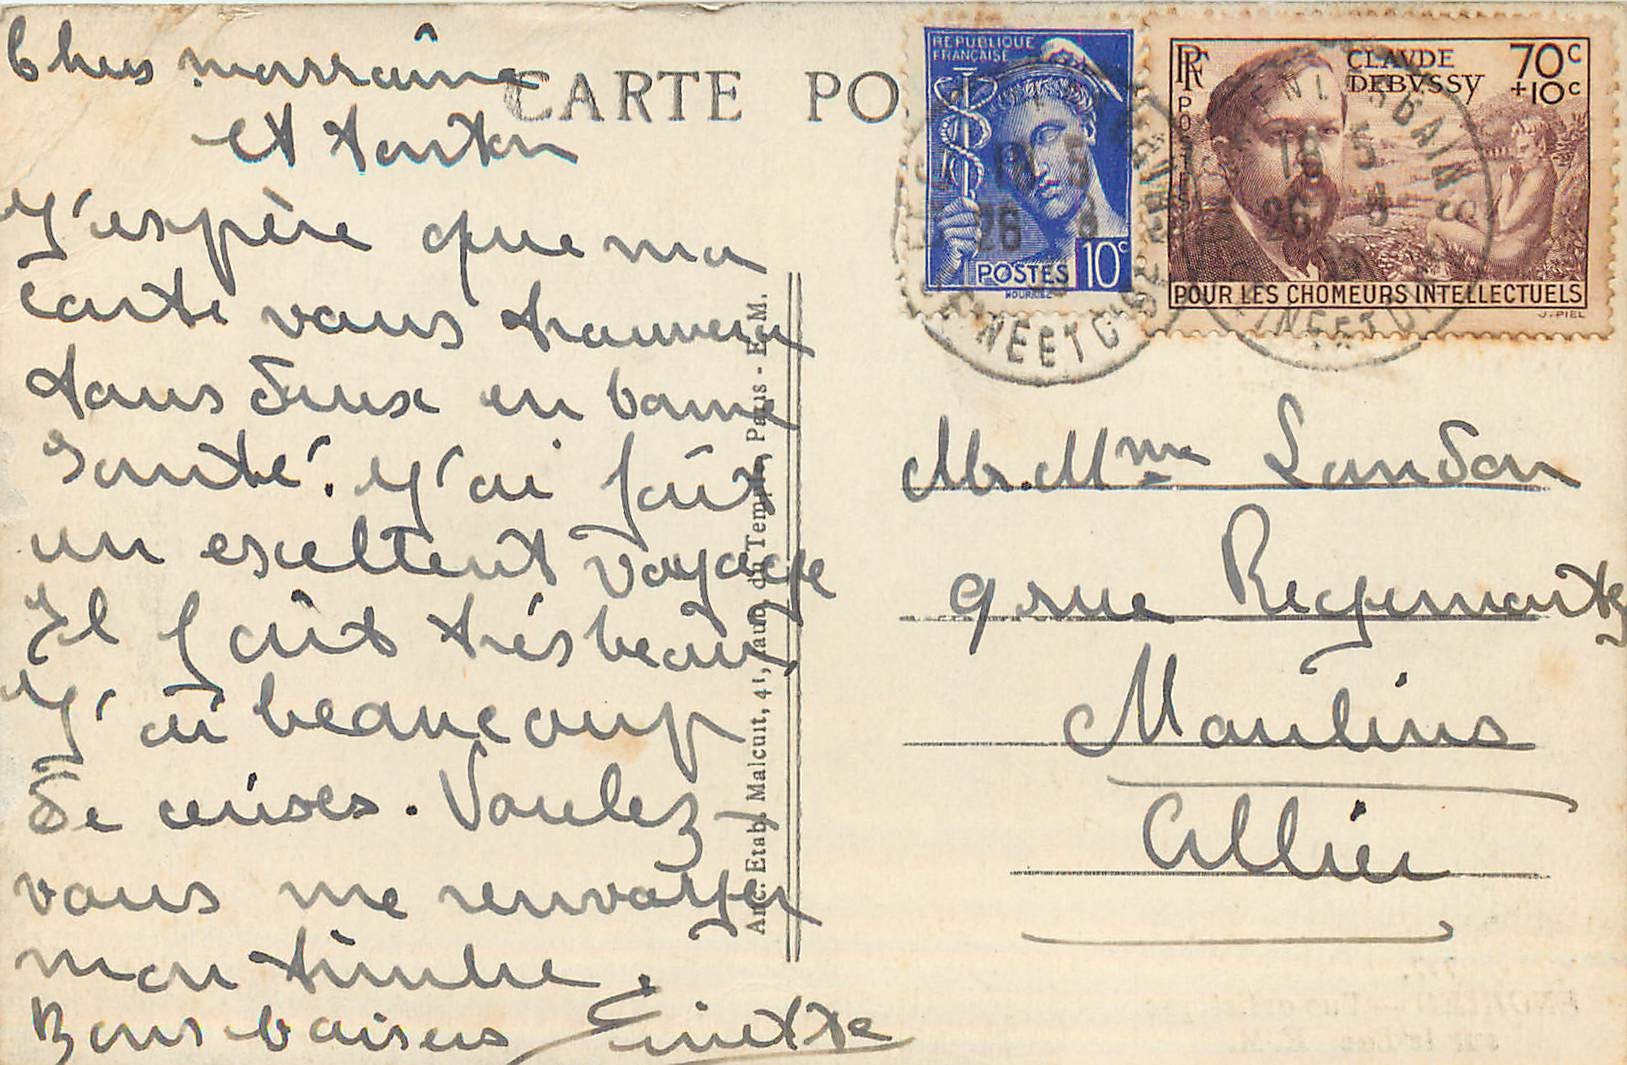 Chers marraine
et tonton
J'espère que ma
carte vous trouvera
tous deux en bonne
santé. J'ai fait
un excellent voyage
Il fait très beau
J'ai beaucoup
de cerises. Voulez
vous me renvoyer
mon timbre.
Bons baisers Ginette
CARTE PO
Anc. Etabl. Malcuit, 41, faub. du Temple, Paris - E. M.
REPUBLIQUE
FRANÇAISE
POSTES 10c
RF
POSTES
CLAVDE
DEBVSSY
70c
+10c
POUR LES CHOMEURS INTELLECTUELS
J. PIEL
18 5
26
18 5
26 5
Mr. Mme Landon
9 rue Regemortes
Moulins
Allier